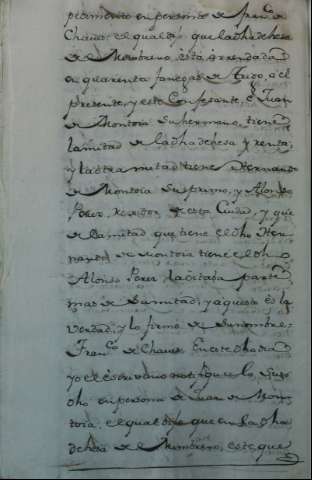 pedimento en persona de fran.co de
Chaues: el qual dijo que la dha dehesa
de el Membreno, està arrendada
en quarenta fanegas de trigo, a el
presente, y este Confesante, è Juan
de Montoia su hermano, tiene
la mitad de la dha dehesa, y renta;
y la otra mitad tiene Hernando
de Montoia su primo, y Alonso
Perez, Rexidor de esta Ciudad, y que
de la mitad que tiene el dho Her-
nando de Montoia tiene el dho
Alonso Perez, la octaba parte
mas de la mitad; y aquesta es la
verdad; y lo firmo de su nombre:
Fran.co de Chaues. En este dho dia
yo el escriuano notifique lo suso
dho en persona de Juan de Mon-
toia; el qual dijo que en la dha
dehesa de el Membreno, este que